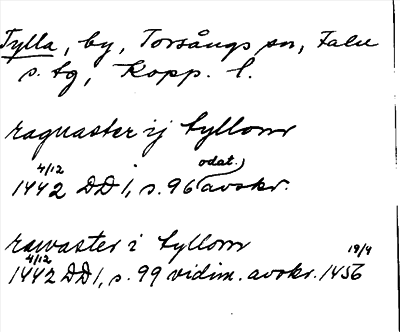 Tylla, by, Torsångs sn, Falu
s. tg, Kopp. l.
ragnaster ij tyllom
4/12 odat.
1442 DD 1, s. 96 avskr.
rawaster i tyllom
4/12 19/4
1442 DD 1, s. 99 vidim. avskr. 1456